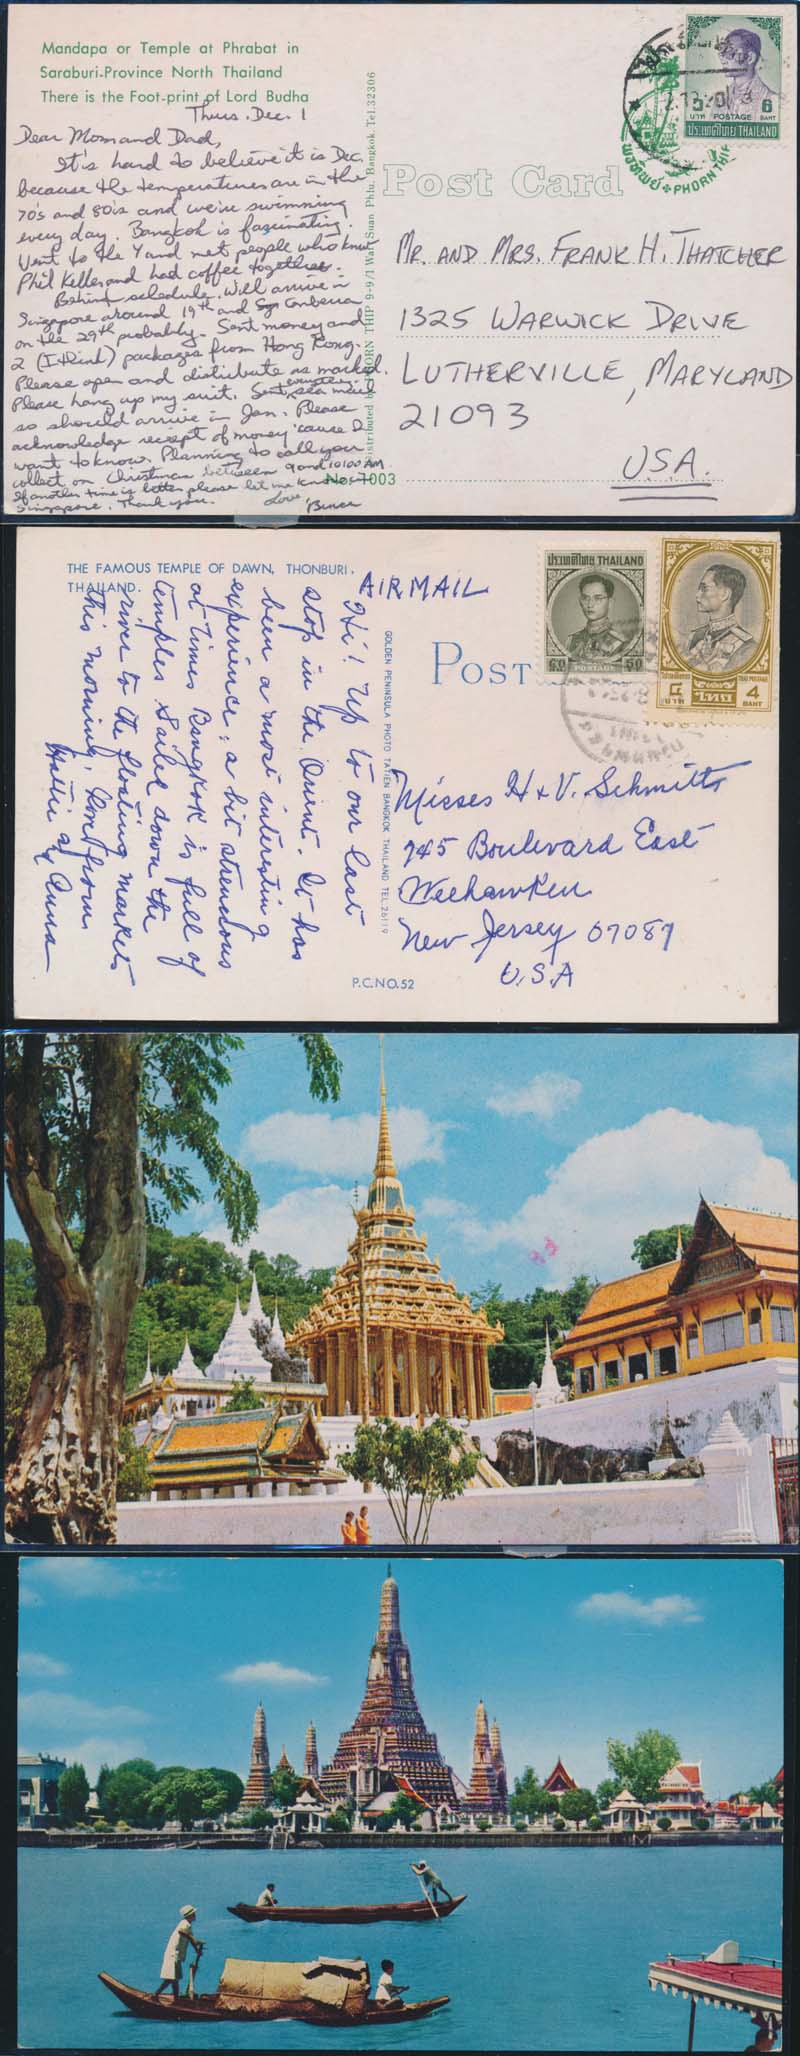 Mandapa or Temple at Phrabat in
Saraburi-Province North Thailand
There is the Foot-print of Lord Budha
Thurs. Dec. 1
Dear Mom and Dad,
It's hard to believe it is Dec.
because the temperatures are in the
70's and 80's and we're swimming
every day. Bangkok is fascinating.
Went to the Y and met people who knew
Phil Keller and had coffee together.
Behind schedule. Will arrive in
Singapore around 19th and Canberra
on the 29th probably. Sent money and
2 (I think) packages from Hong Kong.
Please open and distribute as marked.
Please hang up my suit. Sent everything sea mail
so should arrive in Jan. Please
acknowledge receipt of money 'cause I
want to know. Planning to call you
collect on Christmas between 9 and 10:00 AM.
If another time is better please let me know in
Singapore. Thank you. Love,
Distributed by PHORN THIP 9-9/1 Wat Suan Phlu. Bangkok. Tel.32306
No. 7003
Post Card
6
บาท POSTAGE BAHT
ประเทศไทย THAILAND
พรทิพย์ PHORN THIP
MR. AND MRS. FRANK H. THATCHER
1325 WARWICK DRIVE
LUTHERVILLE, MARYLAND
21093
U.S.A.
THE FAMOUS TEMPLE OF DAWN, THONBURI,
THAILAND.
AIRMAIL
Hi! Up to our last
stop in the Orient. It has
been a most interesting
experience; a bit strenuous
at times Bangkok is full of
temples Sailed down the
river to the floating markets
this morning. Love from
Hattie & Anna
GOLDEN PENINSULA PHOTO TATIEN BANGKOK THAILAND TEL.26119
P.C.NO.52
POST
ประเทศไทย THAILAND
๕๐ POSTAGE 50
๔ บาท ไทย THAI POSTAGE 4 BAHT
Misses H & V. Schmitt
745 Boulevard East
Weehawken
New Jersey 07087
U.S.A